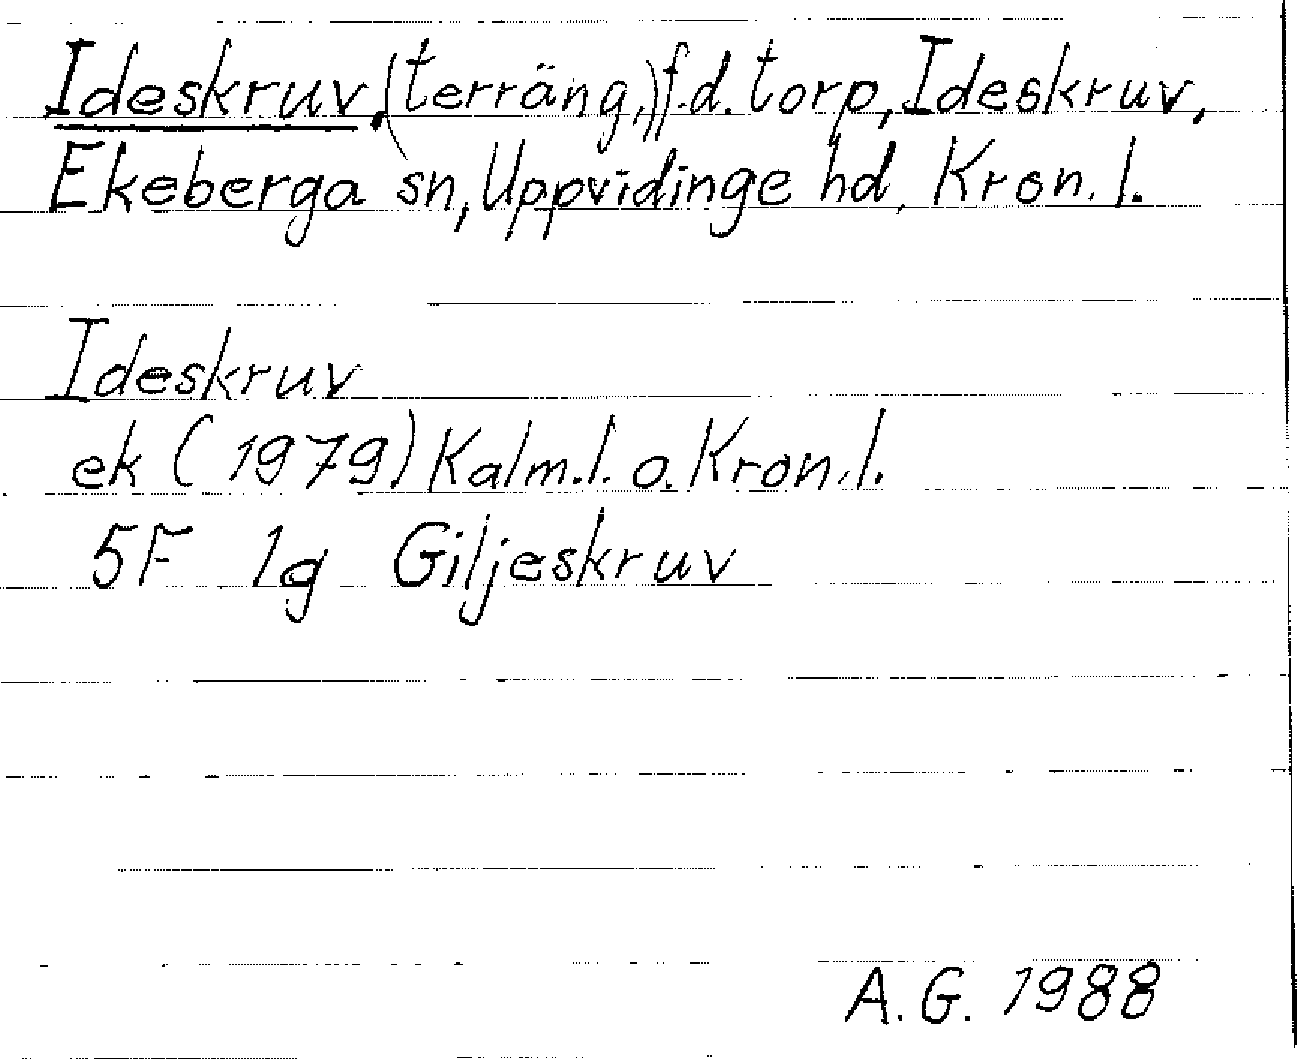 Ideskruv, (terräng,) f.d. torp, Ideskruv,
Ekeberga sn, Uppvidinge hd, Kron. l.
Ideskruv
ek (1979) Kalm. l. o. Kron. l.
5F 1g Giljeskruv
A.G. 1988